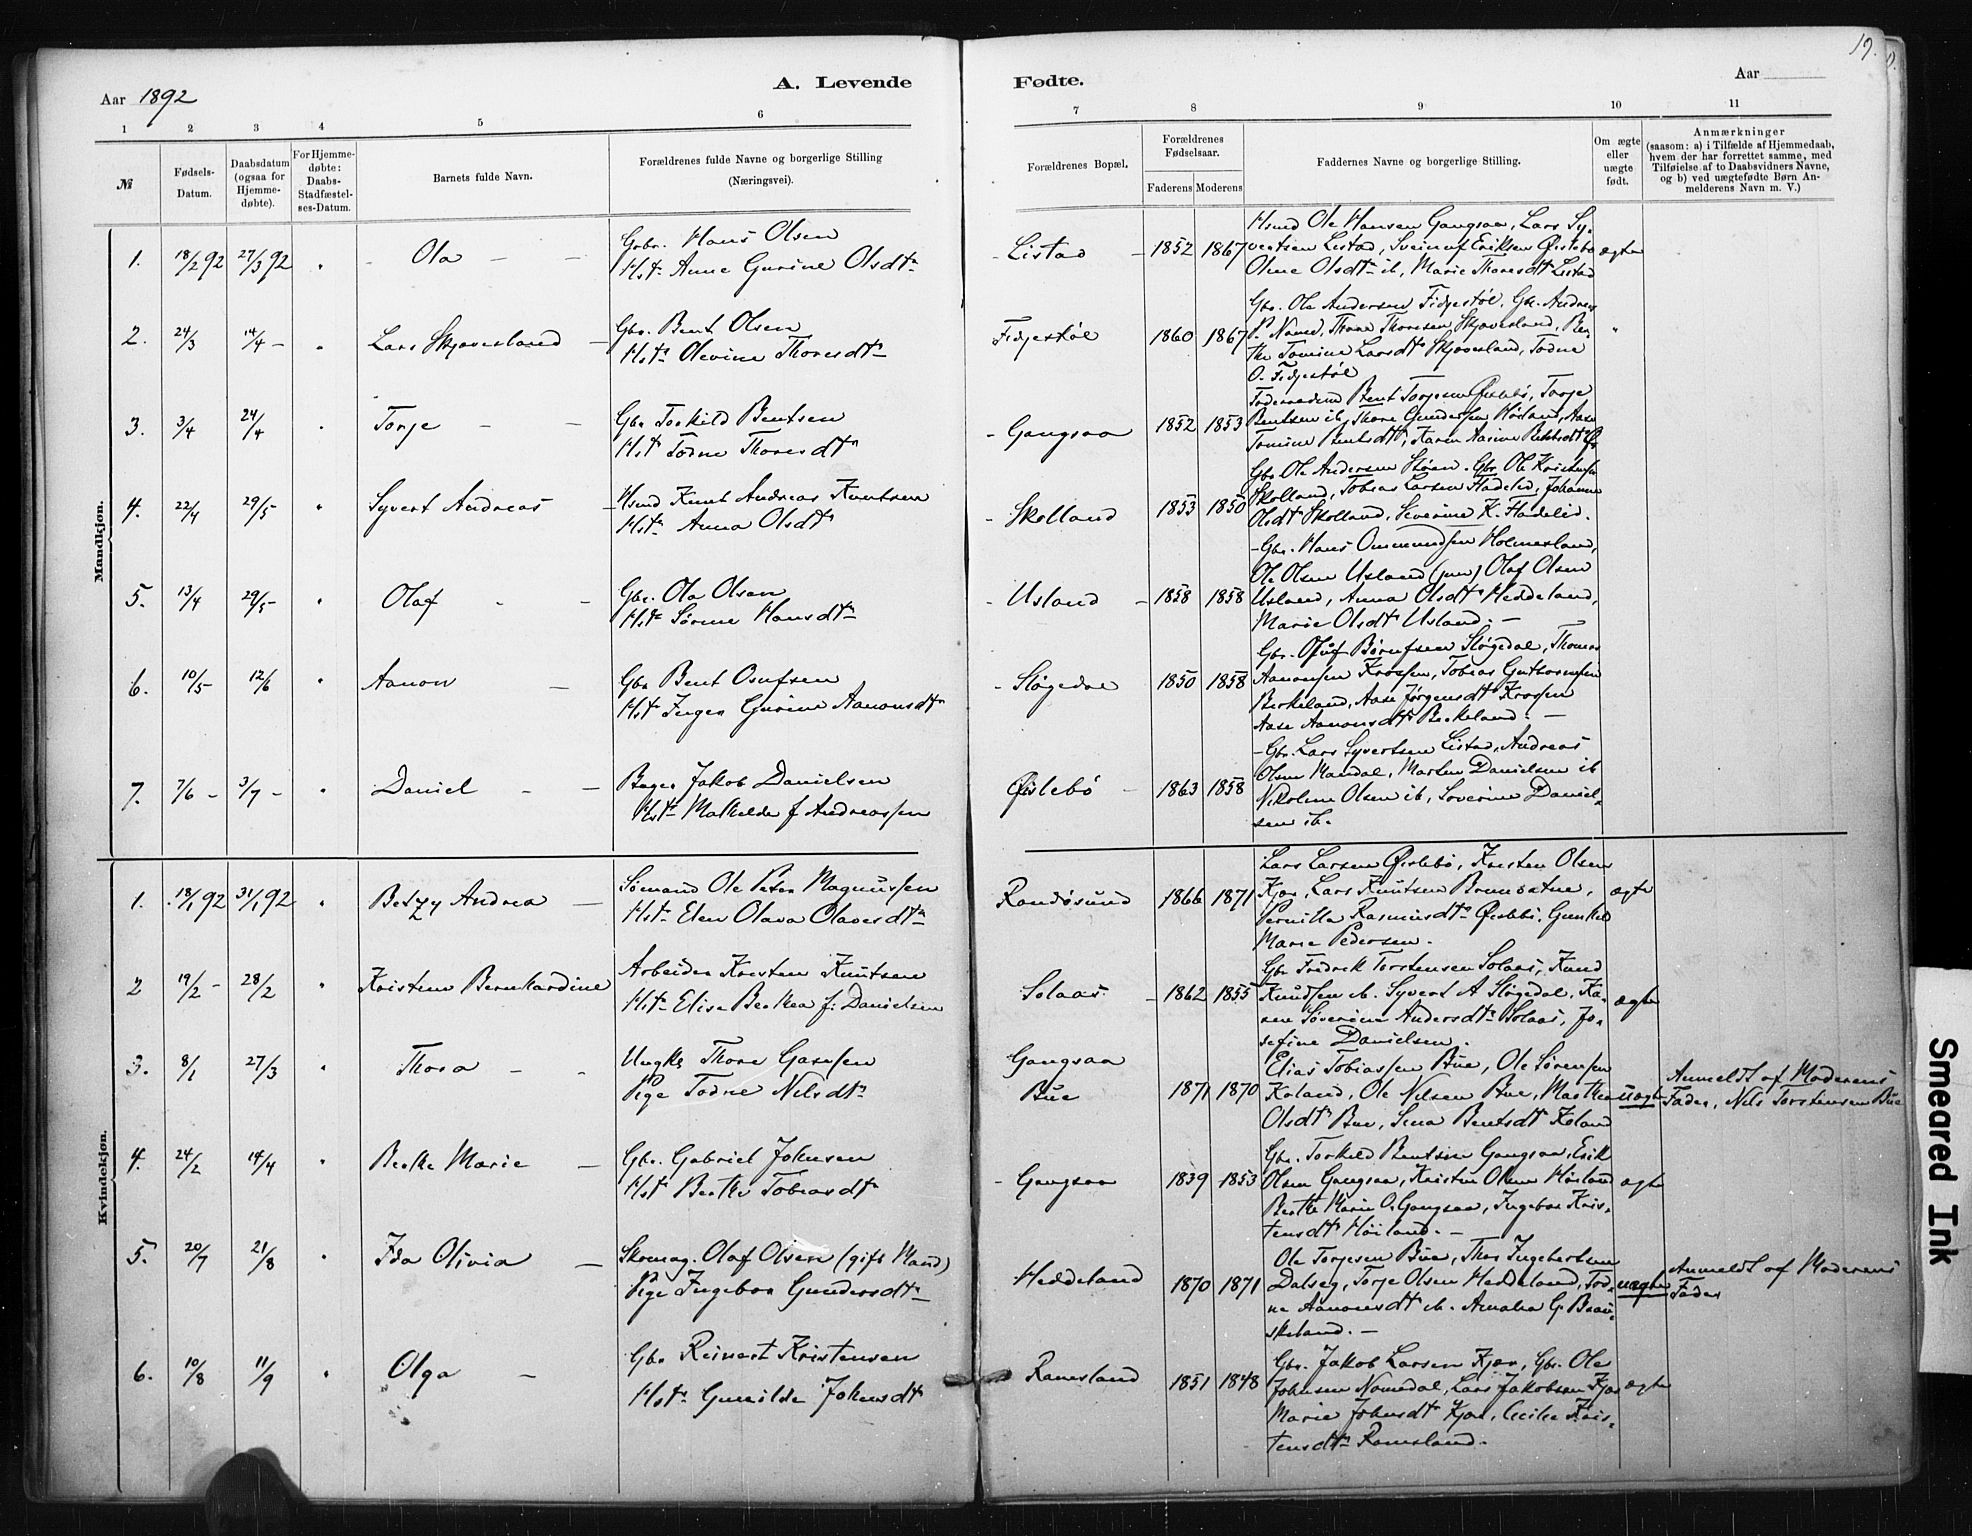 19.
Aar 1892
A. Levende
Fødte.
Aar
1 2 3 4 5 6 7 8 9 10 11
№
Fødsels-
Datum.
Daabsdatum
(ogsaa for
Hjemme-
døbte).
For Hjemme-
døbte:
Daabs-
Stadfæstel-
ses-Datum.
Barnets fulde Navn.
Forældrenes fulde Navne og borgerlige Stilling
(Næringsvei).
Forældrenes Bopæl.
Forældrenes
Fødselsaar.
Faderens Moderens
Faddernes Navne og borgerlige Stilling.
Om ægte
eller
uægte
født.
Anmærkninger
(saasom: a) i Tilfælde af Hjemmedaab,
hvem der har forrettet samme, med
Tilføielse af to Daabsvidners Navne,
og b) ved uægtefødte Børn An-
melderens Navn m. V.)
Mandkjøn.
1. 18/2 92 27/3 92 " Ola
Gbr. Hans Olsen
Hst. Anne Gurine Olsdtr
Listad 1852 1867
Hsmd Ole Hansen Gangsaa, Lars Sy-
vertsen Listad, Eriksen Øislebø
Olsdtr ib, Marie Thoresdt Listad
ægte
2. 24/3 14/4 " Lars Skjævesland
Gbr. Bent Olsen
Hstr Olevine Thoresdtr
Fidjestøl 1860 1867
Gbr. Ole Andersen Fidjestøl, Gbr. Andreas
P. Nome, Thore Thoresen Skjævesland, Ber-
the Tomine Larsdtr Skjævesland, Todne
O. Fidjestøl
"
3. 3/4 24/4 " Torje
Gbr Torkild Bentsen
Hst Todne Thoresdtr
Gangsaa 1852 1853
Bent Torjesen Øislebø, Torje
Bentsen ib, Thore Gundersen Høiland, Aase
Tomine Bentsdtr, Karen Aasine Bentsdtr
4. 22/4 29/5 " Syvert Andreas
Hsmd Knut Andreas Knutsen
Hstr Anna Olsdtr
Skolland 1853 1850
Gbr Ole Andersen Støen. Gbr Ole Kristensen
Skolland, Tobias Larsen Fladelid, Johanne
Olsdtr Skolland, Severine K. Fladelid.
5. 13/4 29/5 " Olaf
Gbr. Ola Olsen
Hstr Sørine Hansdtr
Usland 1858 1858
Gbr. Hans Ommundsen Holmesland,
Ole Olsen Usland (jun) Olaf Olsen
Usland, Anna Olsdtr Heddeland,
Marie Olsdtr Usland.
6. 10/5 12/6 " Aanon
Gbr Bent Osufsen
Hst Inger Gurine Aanonsdtr
Sløgedal 1850 1858
Gbr. Børufsen Sløgedal, Thomas
Aanonsen Krossen, Tobias Guthormsen
Birkeland, Aase Jørgensdtr Krossen
Aase Aanonsdtr Birkeland.
7. 7/6 3/7 " Daniel
Bager Jakob Danielsen
Hstr Mathilde f Andreassen
Øislebø 1863 1858
Gbr. Lars Syvertsen Listad, Andreas
Olsen Mandal, Morten Danielsen ib
Nikoline Olsen ib, Severine Daniel-
sen ib.
Kvindekjøn.
1. 18/1 92 31/1 92 " Betzy Andrea
Sømand Ole Peter Magnussen
Hstr Elen Olava Olavesdtr
Randøsund 1866 1871
Lars Larsen Øislebø, Kristen Olsen
Kjær, Lars Knutsen Brunvatne,
Pernille Rasmusdtr Øislebø, Gunhild
Marie Pedersen.
ægte
2 19/2 28/2 " Kristine Bernhardine
Arbeider Kristen Knutsen
Hstr Elise Berthea f. Danielsen
Solaas 1862 1855
Gbr Fredrik Torstensen Solaas, Knud
Knudsen ib. Syvert A Sløgedal, Ka-
ren Søverine Andersdtr Solaas, Jo-
sefine Danielsen.
ægte
3. 8/1 27/3 " Thora
Ungk. Thore Gasesen
Pige Todne Nilsdtr
Gangsaa
Bue 1871 1870
Elias Tobiassen Bue, Ole Sørensen
Koland, Ole Nilsen Bue, Marthea
Olsdtr Bue, Sina Bentsdt Koland
uægte
Anmeldt af Moderens
Fader, Nils Torstensen Bue
4. 24/2 14/4 " Berthe Marie
Gbr. Gabriel Johnsen
Hst Berthe Tobiasdtr
Gangsaa 1839 1853
Gbr. Torkild Bentsen Gangsaa, Erik
Olsen Gangsaa, Kristen Olsen Høiland
Berthe Marie O. Gangsaa, Ingebor Kris-
tensdtr Høiland.
ægte
5. 20/7 21/8 " Ida Olivia
Skomag. Olaf Olsen (gift Mand)
Pige Ingebor Gundersdtr
Heddeland 1870 1871
Ole Torjesen Bue, Thor Ingebertsen
Dalseg, Torje Olsen Heddeland, Tod-
ne Aanonsdtr ib. Amalia G. Brau-
skeland.
uægte
Anmeldt af Moderens
Fader
6. 10/8 11/9 " Olga
Gbr Reinert Kristensen
Hstr Gunilde Johnsdt
Ramsland 1851 1848
Gbr. Jakob Larsen Kjær, Gbr. Ole
Johnsen Nomedal, Lars Jakobsen Kjær
Marie Johnsdtr Kjær, Cecilie Kris-
tensdtr Ramsland.
ægte
Smeared Ink